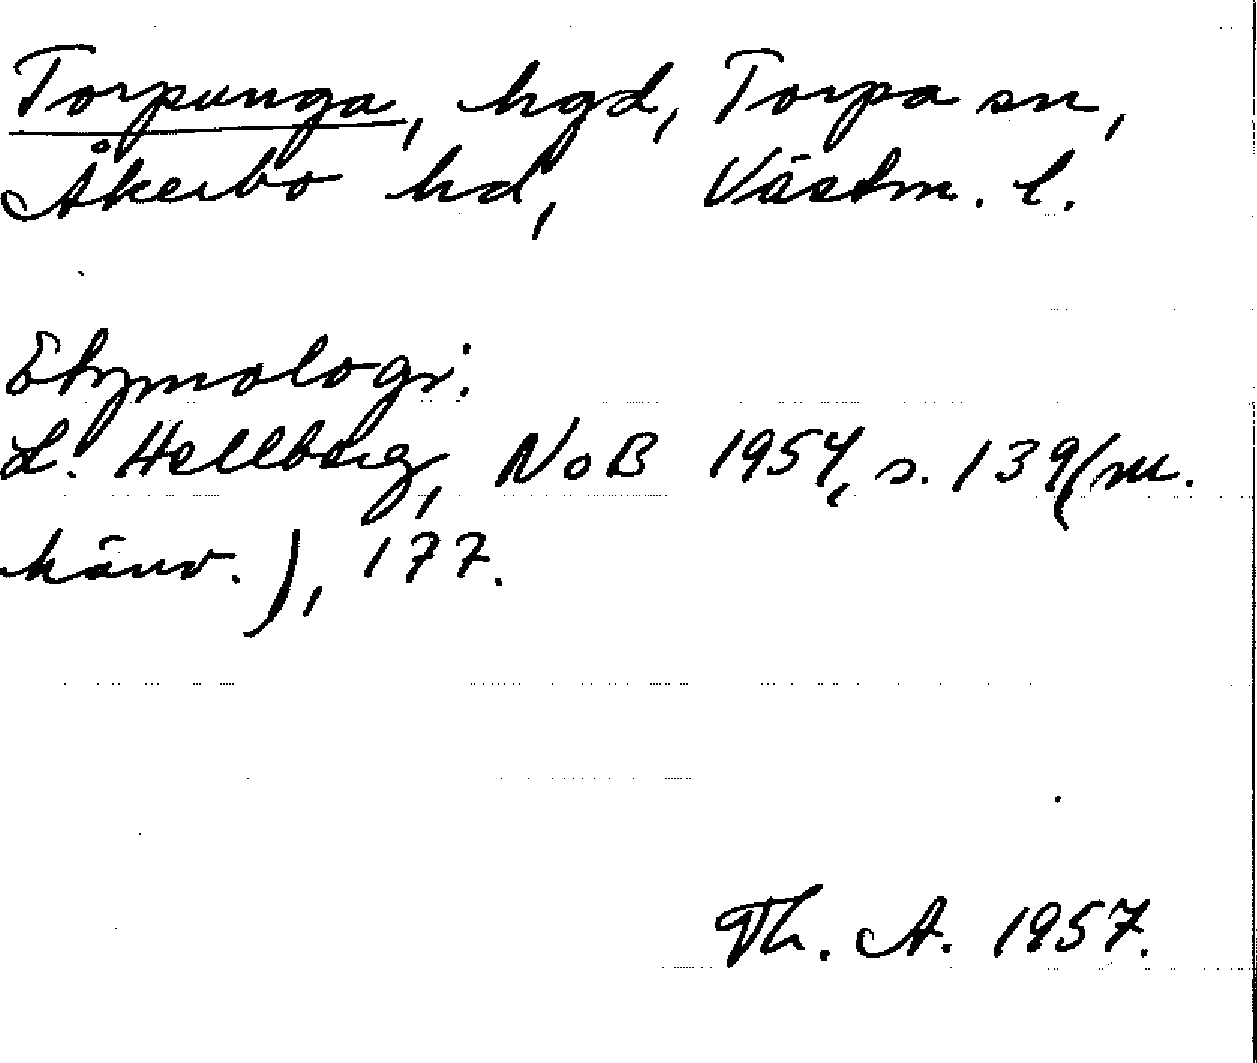 Torpunga, hgd, Torpa sn,
Åkerbo hd, Västm. l.
Etymologi:
L. Hellberg, NoB 1954, s. 139 (m.
hänv.), 177.
Th. A. 1957.